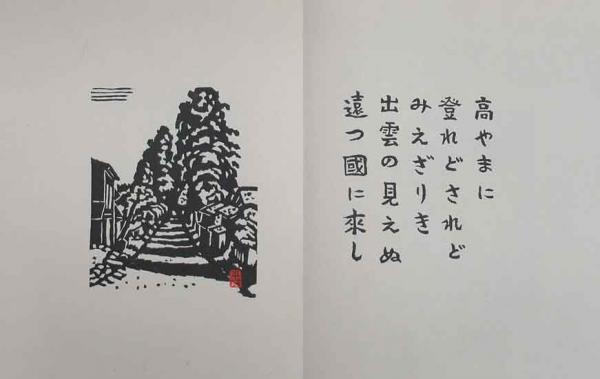 高やまに
登れどされど
みえざりき
出雲の見えぬ
遠つ國に來し